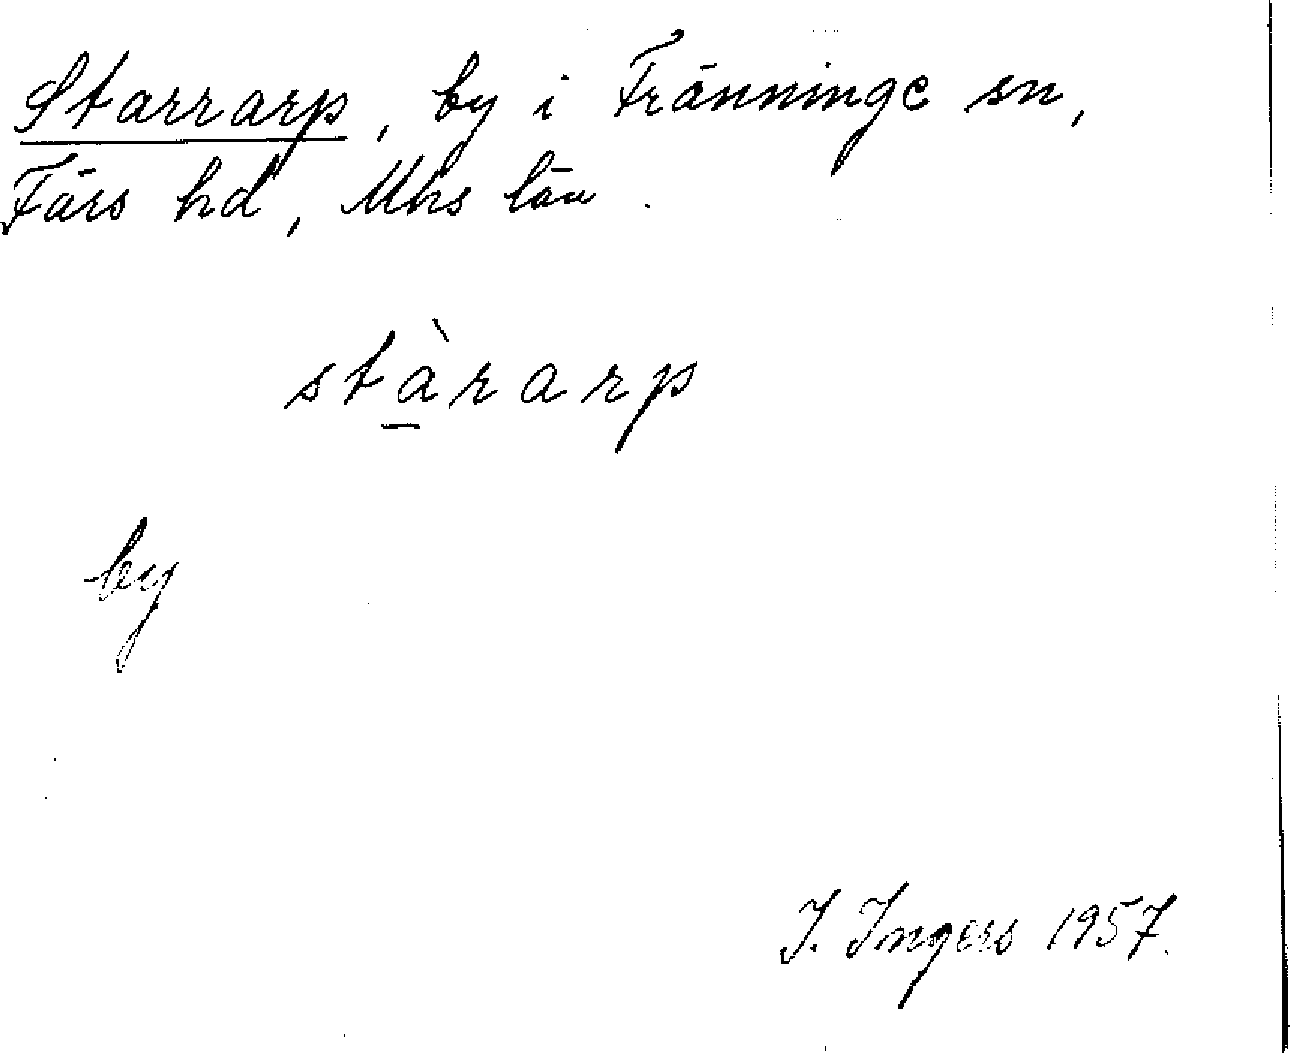 Starrarp, by i Fränninge sn,
Färs hd, Mhs län.
stà̱rarp
by
I. Ingers 1957.